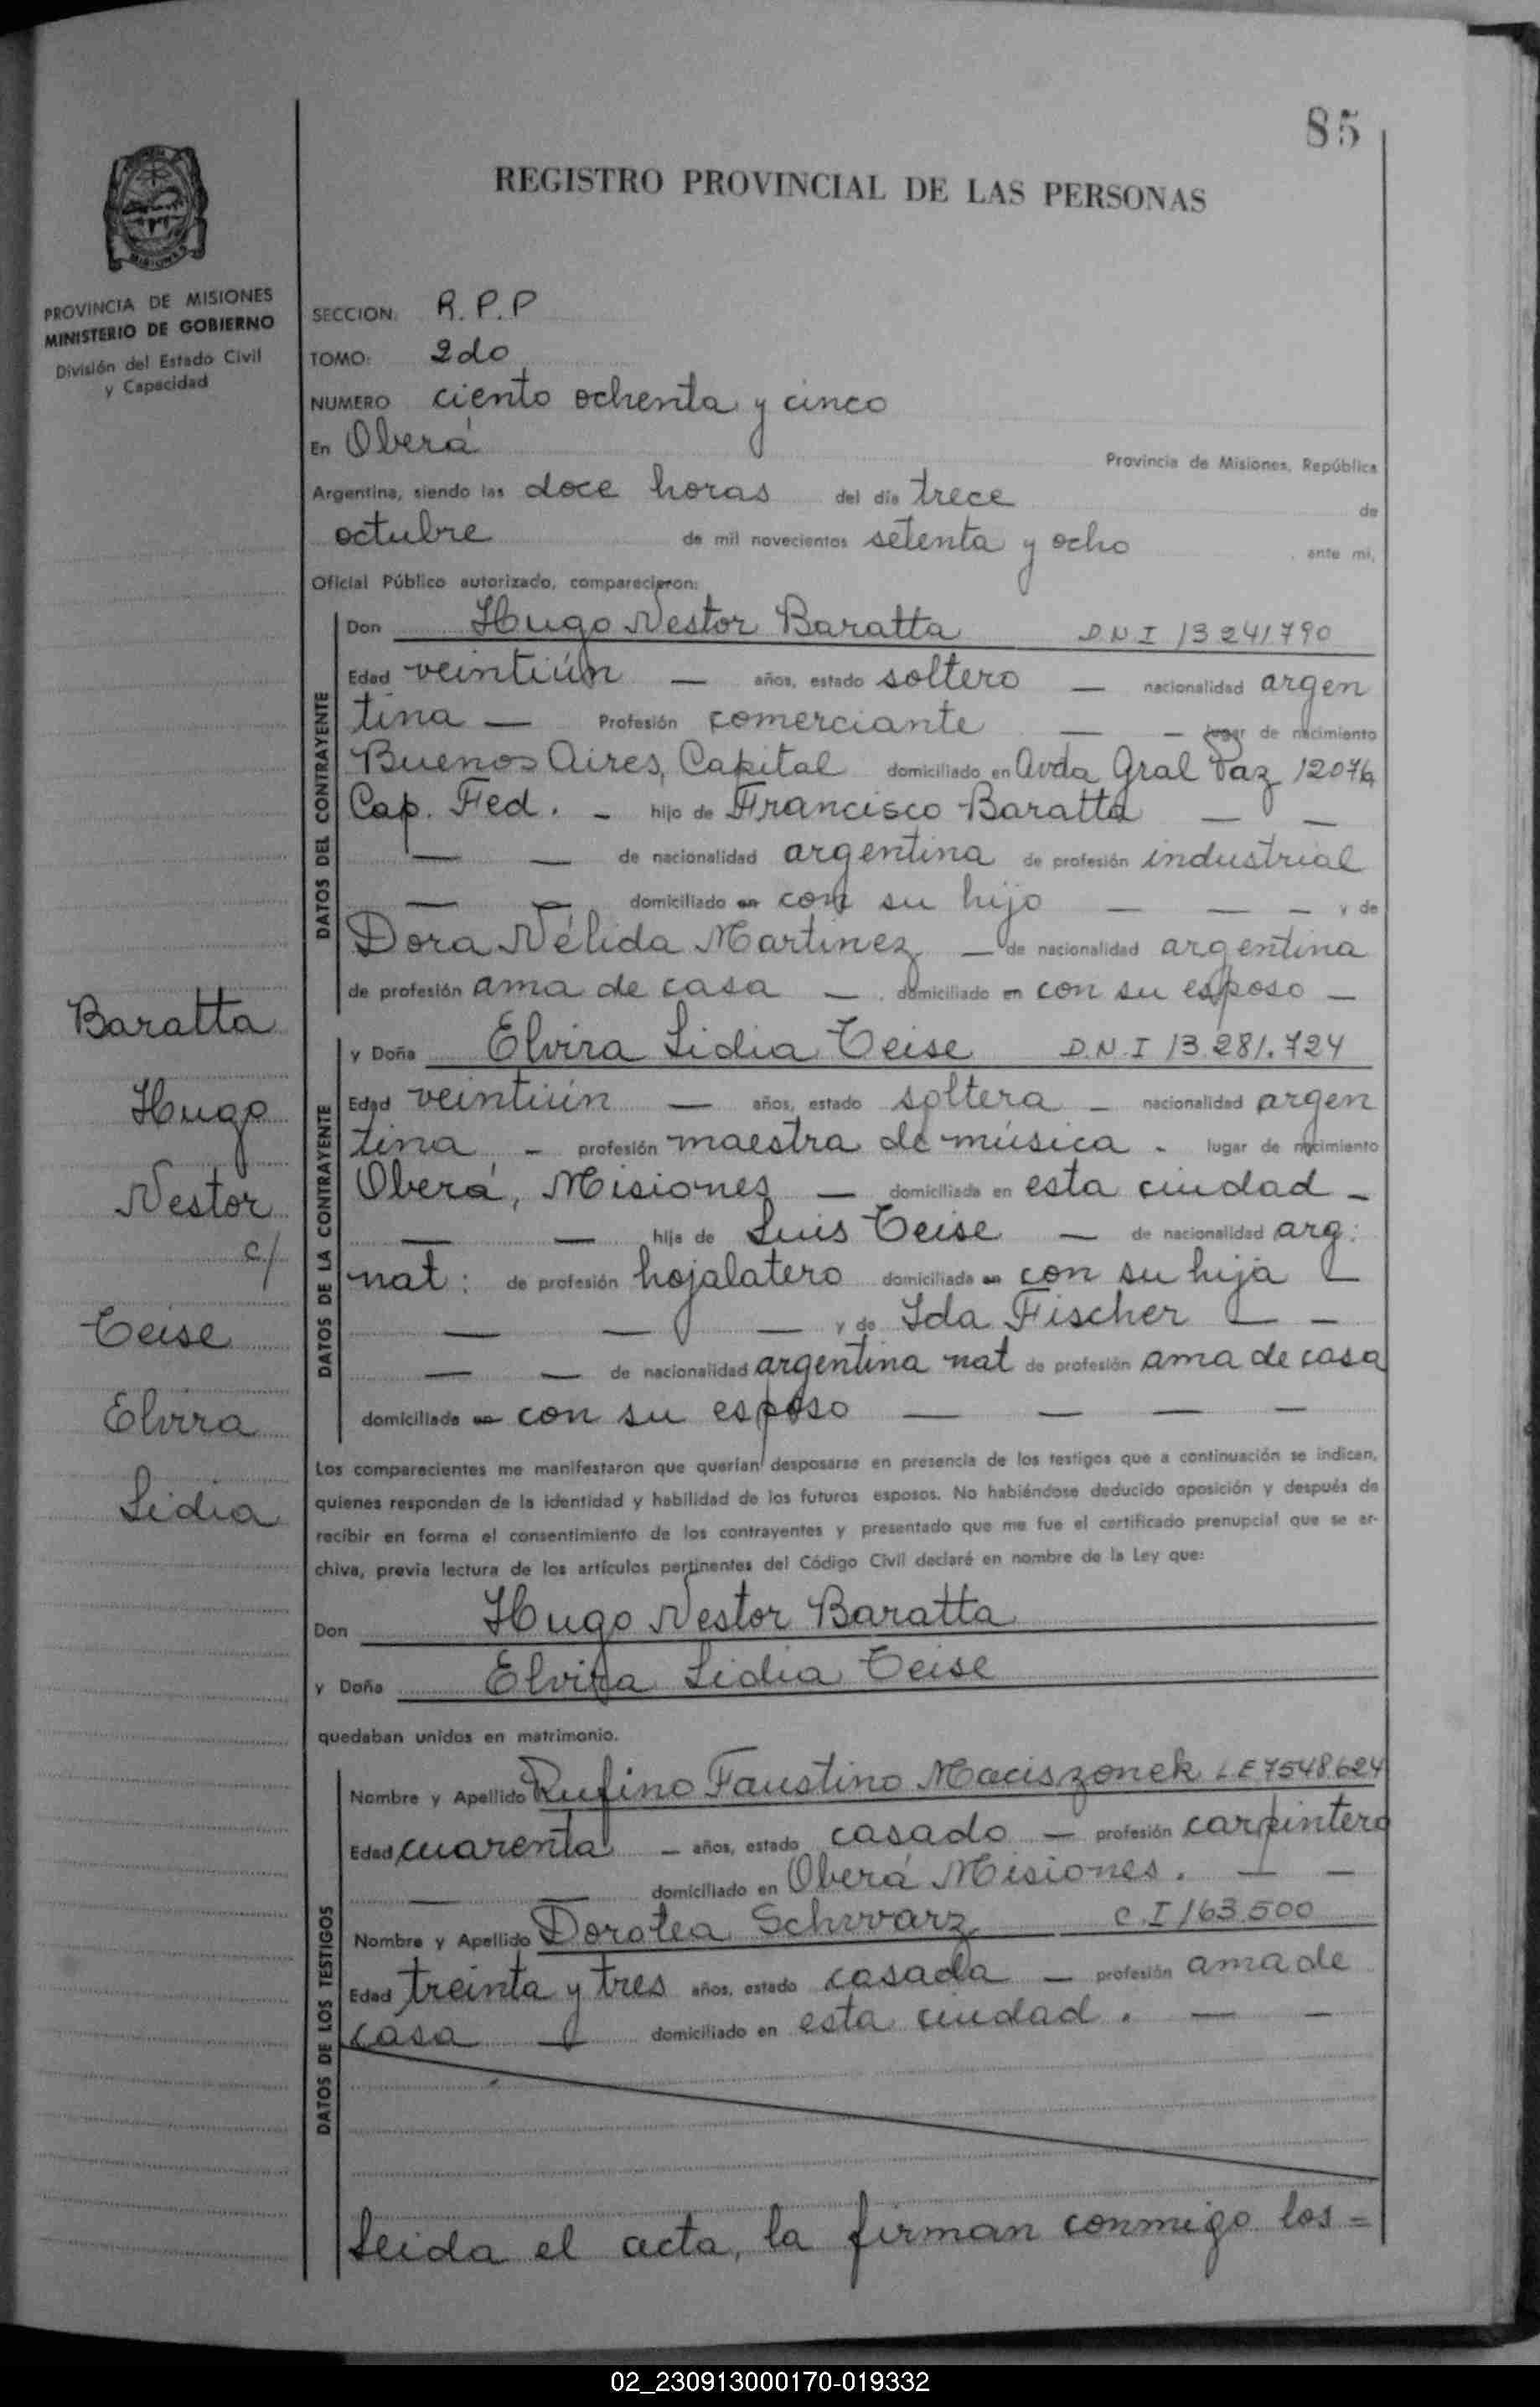 85
REGISTRO PROVINCIAL DE LAS PERSONAS
MISIONES
PROVINCIA DE MISIONES
MINISTERIO DE GOBIERNO
División del Estado Civil
y Capacidad
SECCION: R.P.P
TOMO: 2do
NUMERO ciento ochenta y cinco
En Oberá Provincia de Misiones, República
Argentina, siendo las doce horas del día trece de
octubre de mil novecientos setenta y ocho, ante mi,
Oficial Público autorizado, comparecieron:
DATOS DEL CONTRAYENTE
Don Hugo Nestor Baratta D.N.I 13 241790
Edad veintiún — años, estado soltero — nacionalidad argen
tina — Profesión comerciante — — lugar de nacimiento
Buenos Aires, Capital domiciliado en Avda Gral Paz 12076
Cap. Fed. - hijo de Francisco Baratta — —
— — de nacionalidad argentina de profesión industrial
— — domiciliado en con su hijo — — — y de
Dora Nélida Martinez — de nacionalidad argentina
de profesión ama de casa — . domiciliado en con su esposo —
Baratta
Hugo
Nestor
c/
Teise
Elvira
Lidia
DATOS DE LA CONTRAYENTE
y Doña Elvira Lidia Teise D.N.I 13.281.724
Edad veintiún — años, estado soltera - nacionalidad argen
tina - profesión maestra de música - lugar de nacimiento
Oberá, Misiones — domiciliada en esta ciudad -
— — hija de Luis Teise — de nacionalidad arg:
nat: de profesión hojalatero domiciliada en con su hija —
— — — y de Ida Fischer — -
— — de nacionalidad argentina nat de profesión ama de casa
domiciliada en con su esposo — — — —
Los comparecientes me manifestaron que querían desposarse en presencia de los testigos que a continuación se indican,
quienes responden de la identidad y habilidad de los futuros esposos. No habiéndose deducido oposición y después de
recibir en forma el consentimiento de los contrayentes y presentado que me fue el certificado prenupcial que se ar-
chiva, previa lectura de los artículos pertinentes del Código Civil declaré en nombre de la Ley que:
Don Hugo Nestor Baratta
y Doña Elvira Lidia Teise
quedaban unidos en matrimonio.
DATOS DE LOS TESTIGOS
Nombre y Apellido Rufino Faustino Maciszonek LE 7548624
Edad cuarenta — años, estado casado — profesión carpintero
— — domiciliado en Oberá Misiones. — —
Nombre y Apellido Dorotea Schwarz C.I 163.500
Edad treinta y tres años, estado casada — profesión ama de
casa — domiciliado en esta ciudad. — —
Leida el acta, la firman conmigo los =
02_230913000170-019332